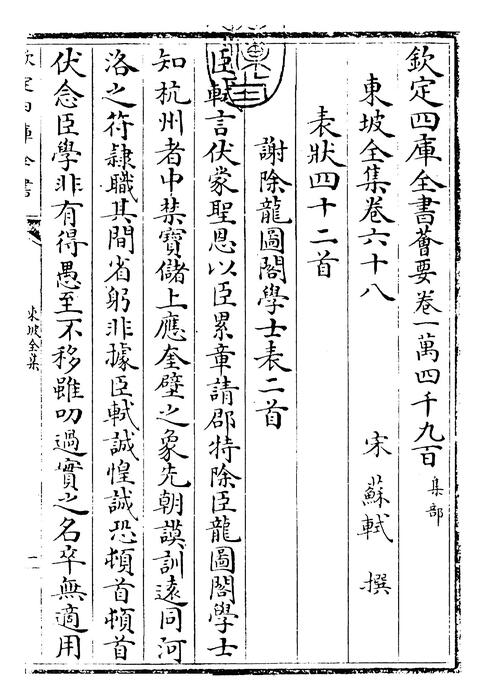 欽定四庫全書薈要卷一萬四千九百 集部
東坡全集卷六十八
宋 蘇軾 撰
表狀四十二首
謝除龍圖閣學士表二首
臣軾言伏蒙聖恩以臣累章請郡特除臣龍圖閣學士
知杭州者中禁寶儲上應奎壁之象先朝謨訓遠同河
洛之符隸職其間省躬非據臣軾誠惶誠恐頓首頓首
伏念臣學非有得愚至不移雖叨過實之名卒無適用
欽定四庫全書
東坡全集
一